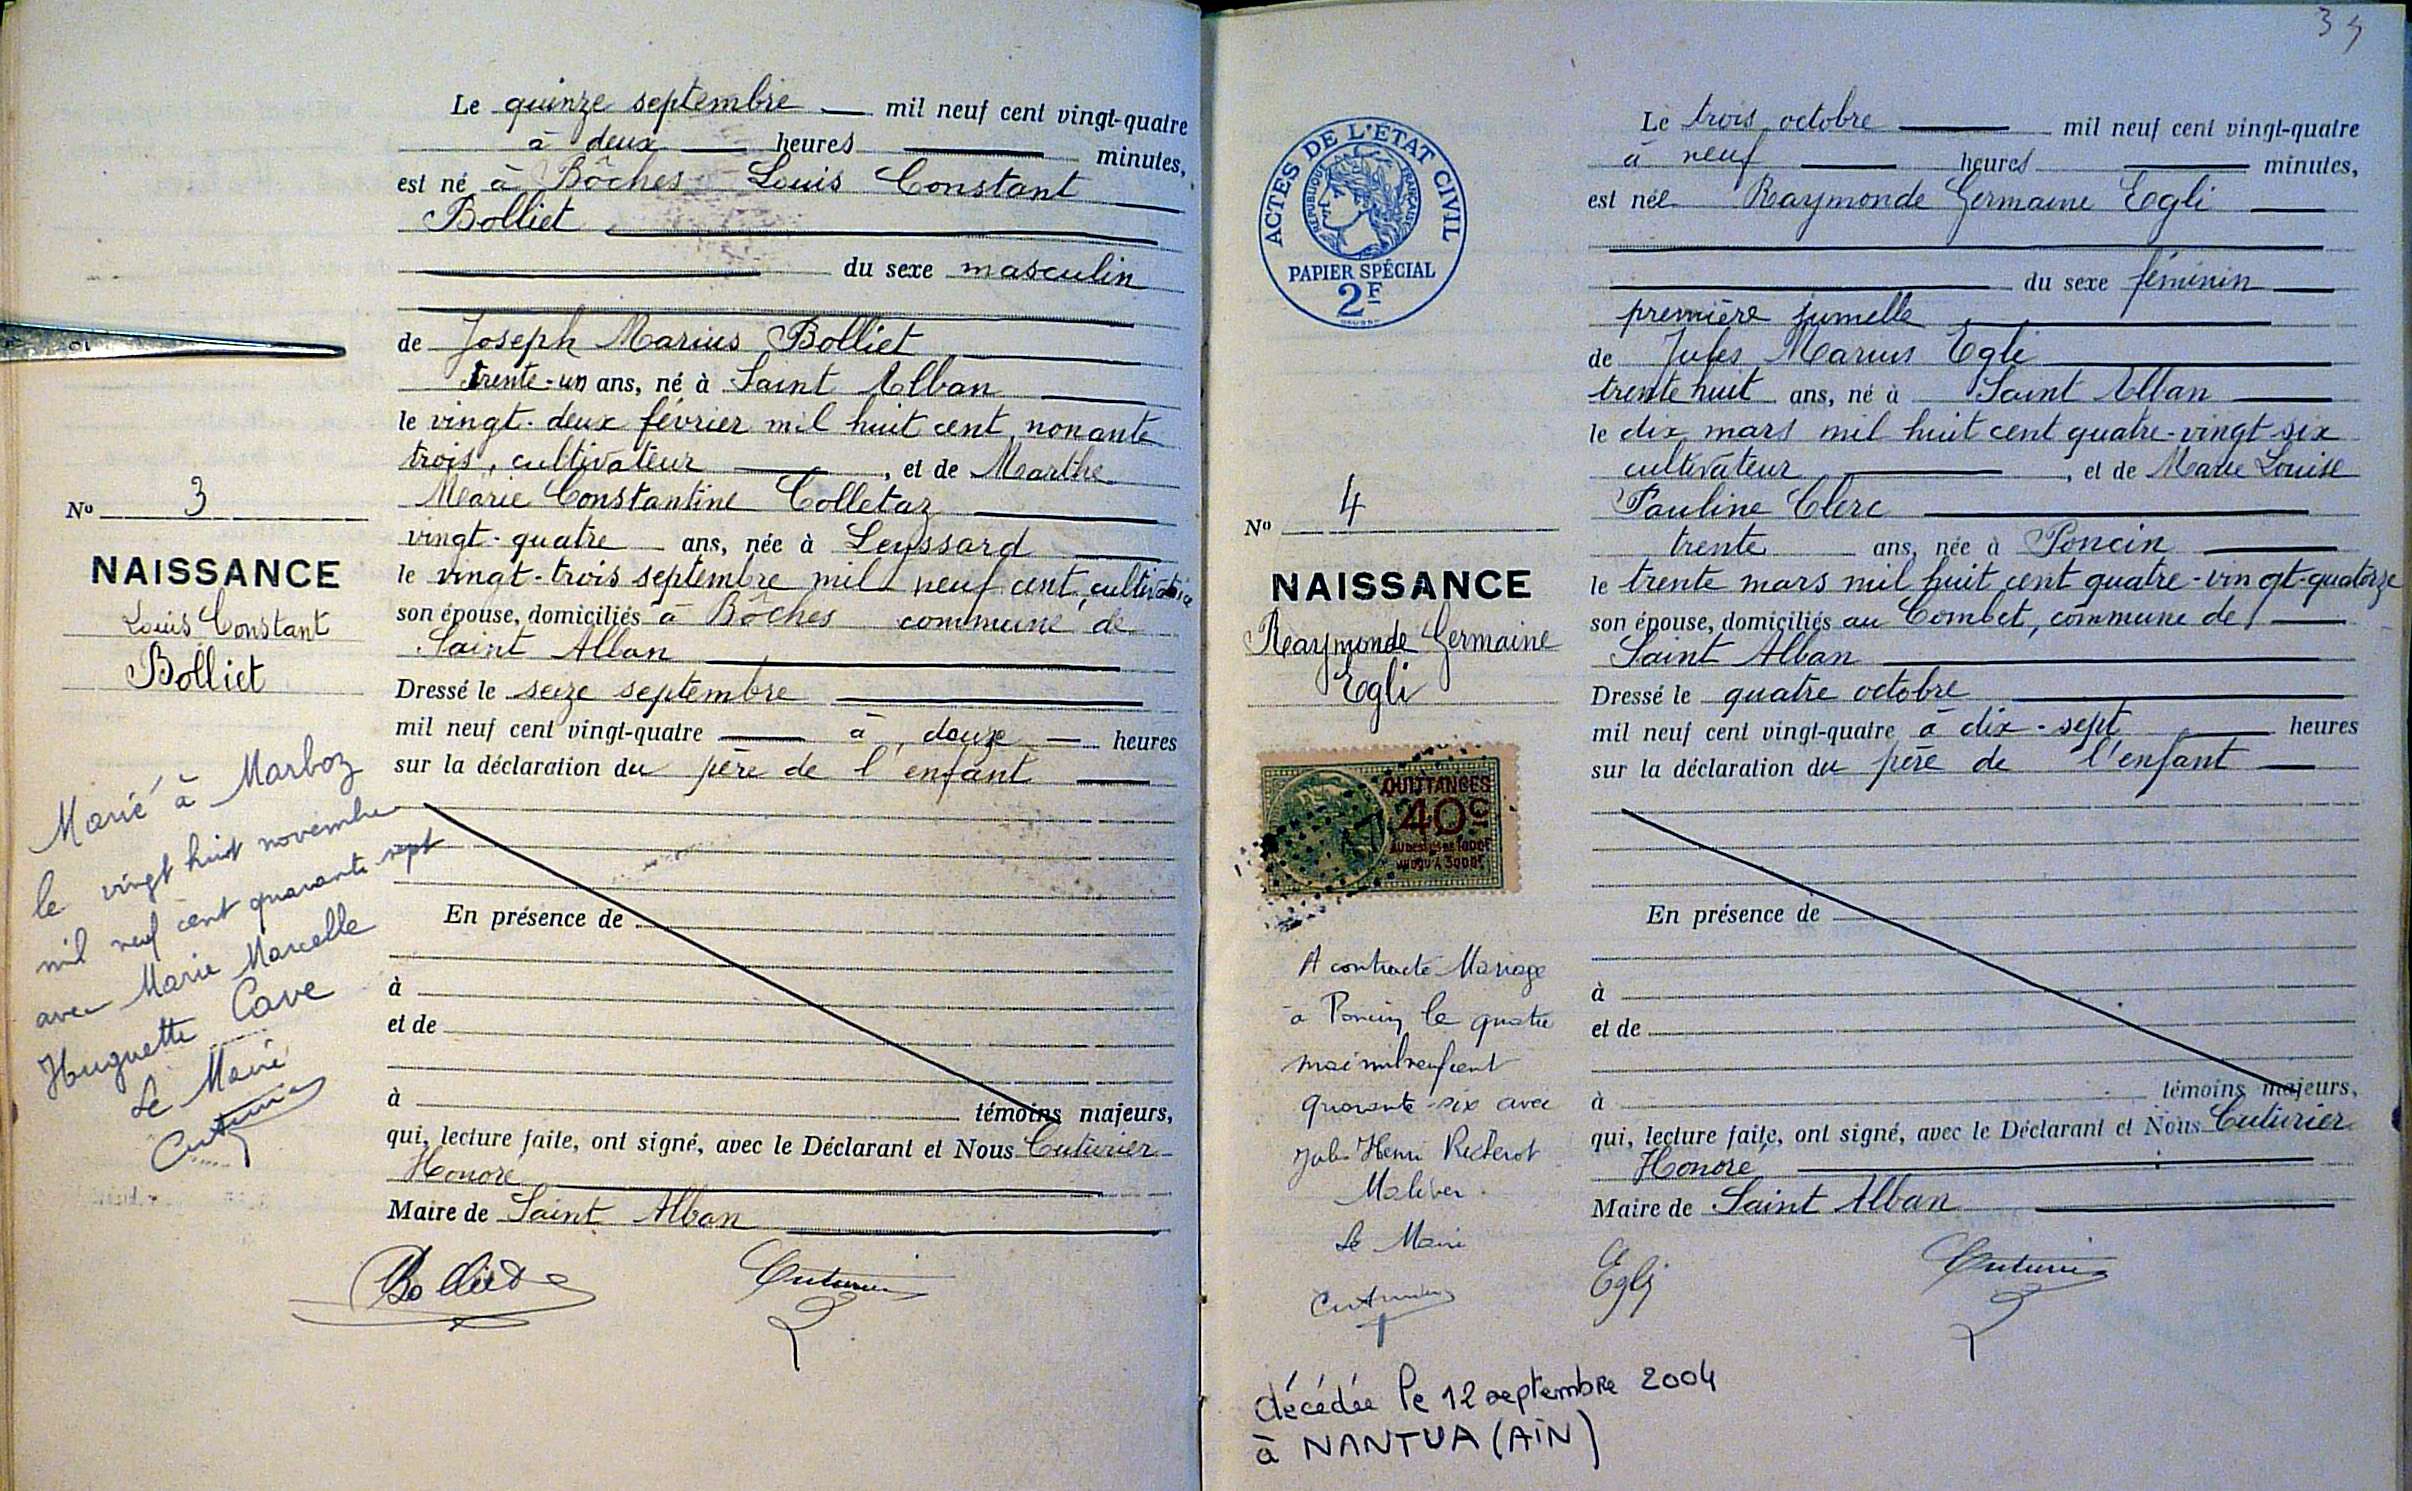 Le quinze septembre mil neuf cent vingt-quatre
à deux heures minutes,
est né à Bôches Louis Constant
Bolliet
du sexe masculin
de Joseph Marius Bolliet
trente-un ans, né à Saint Alban
le vingt-deux février mil huit cent nonante
trois, cultivateur, et de Marthe
Marie Constantine Colletaz
vingt-quatre ans, née à Leyssard
le vingt-trois septembre mil neuf cent, cultivatrice
son épouse, domiciliés à Bôches commune de
Saint Alban
Dressé le seize septembre
mil neuf cent vingt-quatre à douze heures
sur la déclaration du père de l'enfant
En présence de
à
et de
à témoins majeurs,
qui, lecture faite, ont signé, avec le Déclarant et Nous Cuturier
Honoré
Maire de Saint Alban
Bolliet
Cuturier
No 3
NAISSANCE
Louis Constant
Bolliet
Marié à Marboz
le vingt huit novembre
mil neuf cent quarante sept
avec Marie Marcelle
Huguette Cave
Le Maire
Cuturier
34
ACTES DE L'ÉTAT CIVIL
RÉPUBLIQUE FRANÇAISE
PAPIER SPÉCIAL
2F
Le trois octobre mil neuf cent vingt-quatre
à neuf heures minutes,
est née Raymonde Germaine Egli
du sexe féminin
première jumelle
de Jules Marius Egli
trente huit ans, né à Saint Alban
le dix mars mil huit cent quatre-vingt six
cultivateur, et de Marie Louise
Pauline Clerc
trente ans, née à Poncin
le trente mars mil huit cent quatre-vingt-quatorze
son épouse, domiciliés au Combet, commune de
Saint Alban
Dressé le quatre octobre
mil neuf cent vingt-quatre à dix-sept heures
sur la déclaration du père de l'enfant
En présence de
à
et de
à témoins majeurs,
qui, lecture faite, ont signé, avec le Déclarant et Nous Cuturier
Honoré
Maire de Saint Alban
Egli
Cuturier
No 4
NAISSANCE
Raymonde Germaine
Egli
QUITTANCES
40c
AU DESSUS DE 1000F
JUSQU'À 3000F
A contracté Mariage
à Poncin le quatre
mai mil neuf cent
quarante-six avec
Jules Henri
Le Maire
Cuturier
décédée le 12 septembre 2004
à NANTUA (AIN)